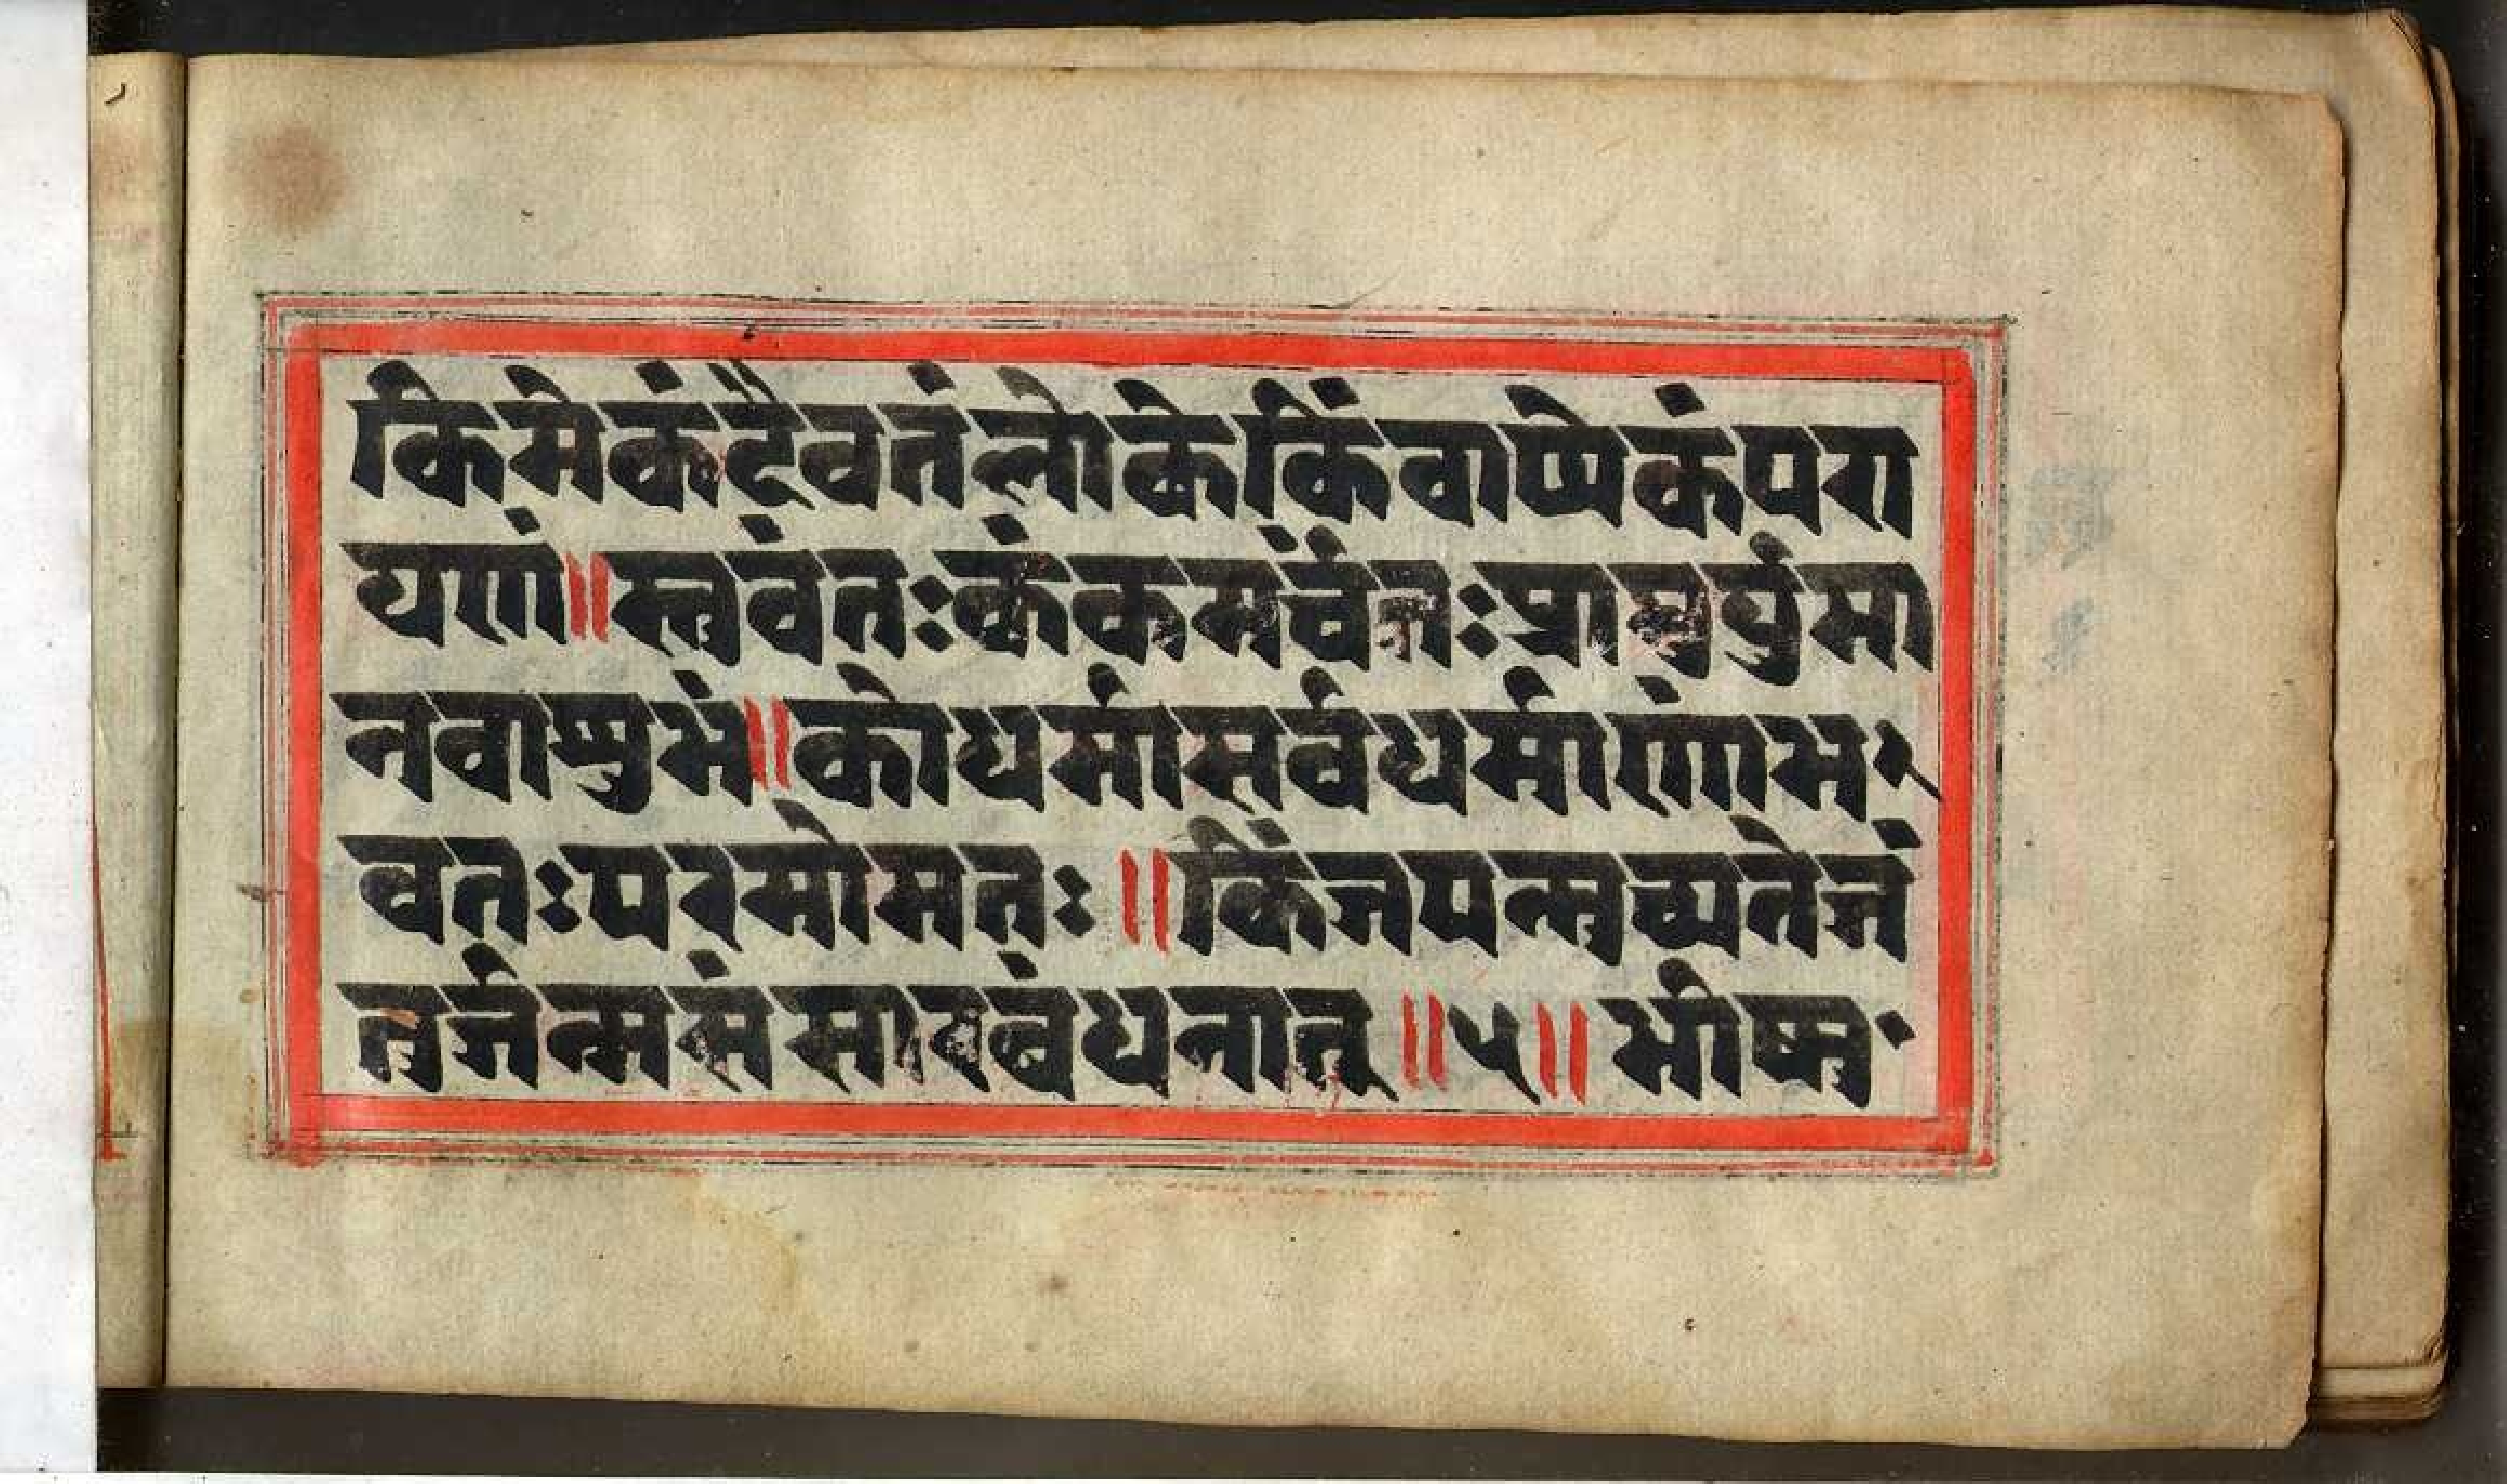 किमेकंदैवतंलोकेकिंवाप्येकंपरा
यणं॥स्तुवंतःकंकमर्चंतःप्राप्नुर्युमा
नवाःशुभं॥कोधर्माःसर्वधर्माणांभ॰
वतःपरमोमतः॥किंजपन्मुच्यतेजं
तुर्जन्मसंसारबंधनात्॥५॥भीष्म॰